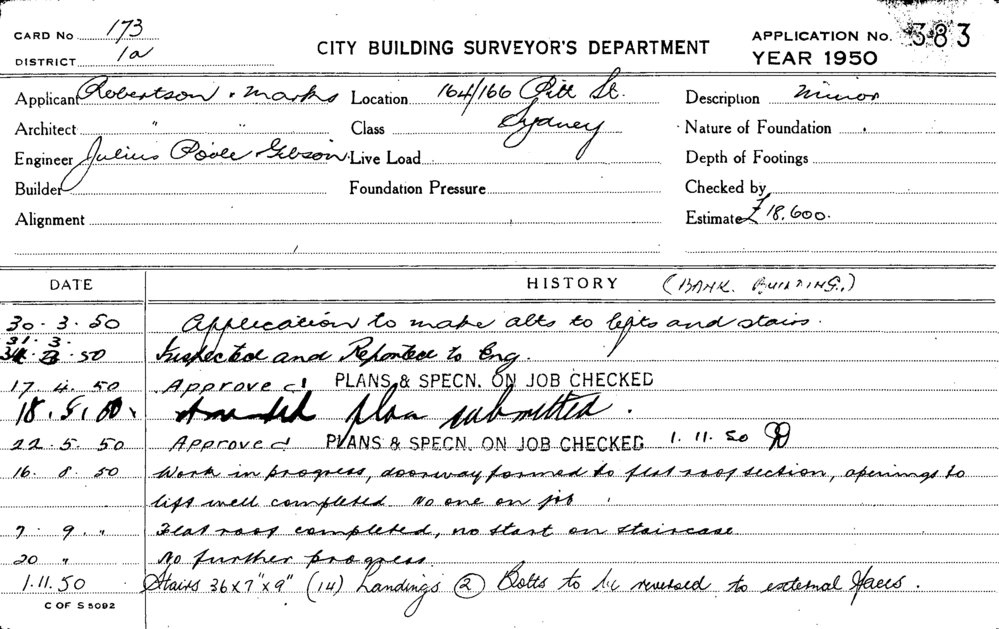 CARD No 173
DISTRICT 1a
CITY BUILDING SURVEYOR'S DEPARTMENT
APPLICATION No. 383
YEAR 1950
Applicant Robertson & Marks Location 164/166 Pitt St. Description Minor
Architect " " Class Sydney Nature of Foundation
Engineer Julius Poole Gibson Live Load Depth of Footings
Builder Foundation Pressure Checked by
Alignment Estimate £18,600.
DATE HISTORY (BANK BUILDING.)
30.3.50 Application to make alts to lifts and stairs.
31.3.50 Inspected and Reported to Eng.
17.4.50 Approved PLANS & SPECN. ON JOB CHECKED
18.5.50. Amended plan submitted.
22.5.50 Approved PLANS & SPECN. ON JOB CHECKED 1.11.50
16.8.50 Work in progress, doorway formed to flat roof section, openings to
lift well completed. No one on job
7.9. " Flat roof completed, no start on staircase
20 " No further progress.
1.11.50 Stairs 36 x 7" x 9" (14) Landings (2) Bolts to be reversed to external faces.
C OF S 5092